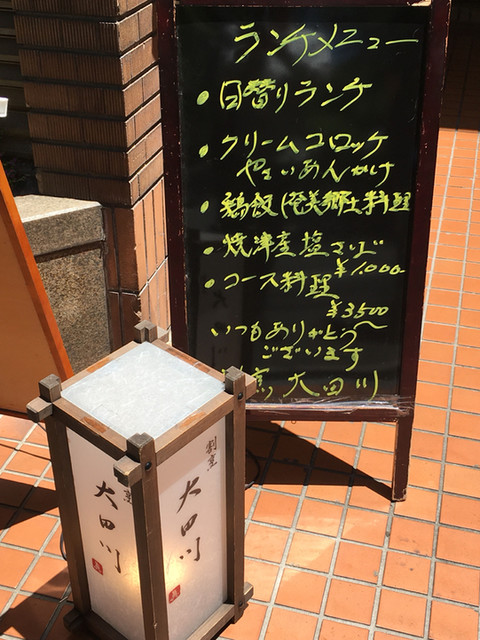 ランチメニュー
・日替りランチ
・クリームコロッケ
やさいあんかけ
・鶏飯(奄美郷土料理
・焼津産塩さば
¥1.000
・コース料理
¥3500〜
いつもありがとう
ございます
割烹 大田川
割烹
大田川
烹
大田川